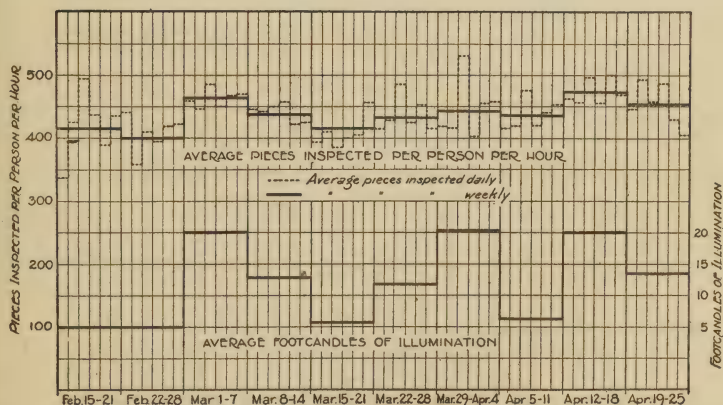 PIECES INSPECTED PER PERSON PER HOUR
500
400
300
200
100
AVERAGE PIECES INSPECTED PER PERSON PER HOUR
Average pieces inspected daily
" " " weekly
20
15
10
5
FOOTCANDLES OF ILLUMINATION
AVERAGE FOOTCANDLES OF ILLUMINATION
Feb.15-21 Feb.22-28 Mar.1-7 Mar.8-14 Mar.15-21 Mar.22-28 Mar.29-Apr.4 Apr.5-11 Apr.12-18 Apr.19-25